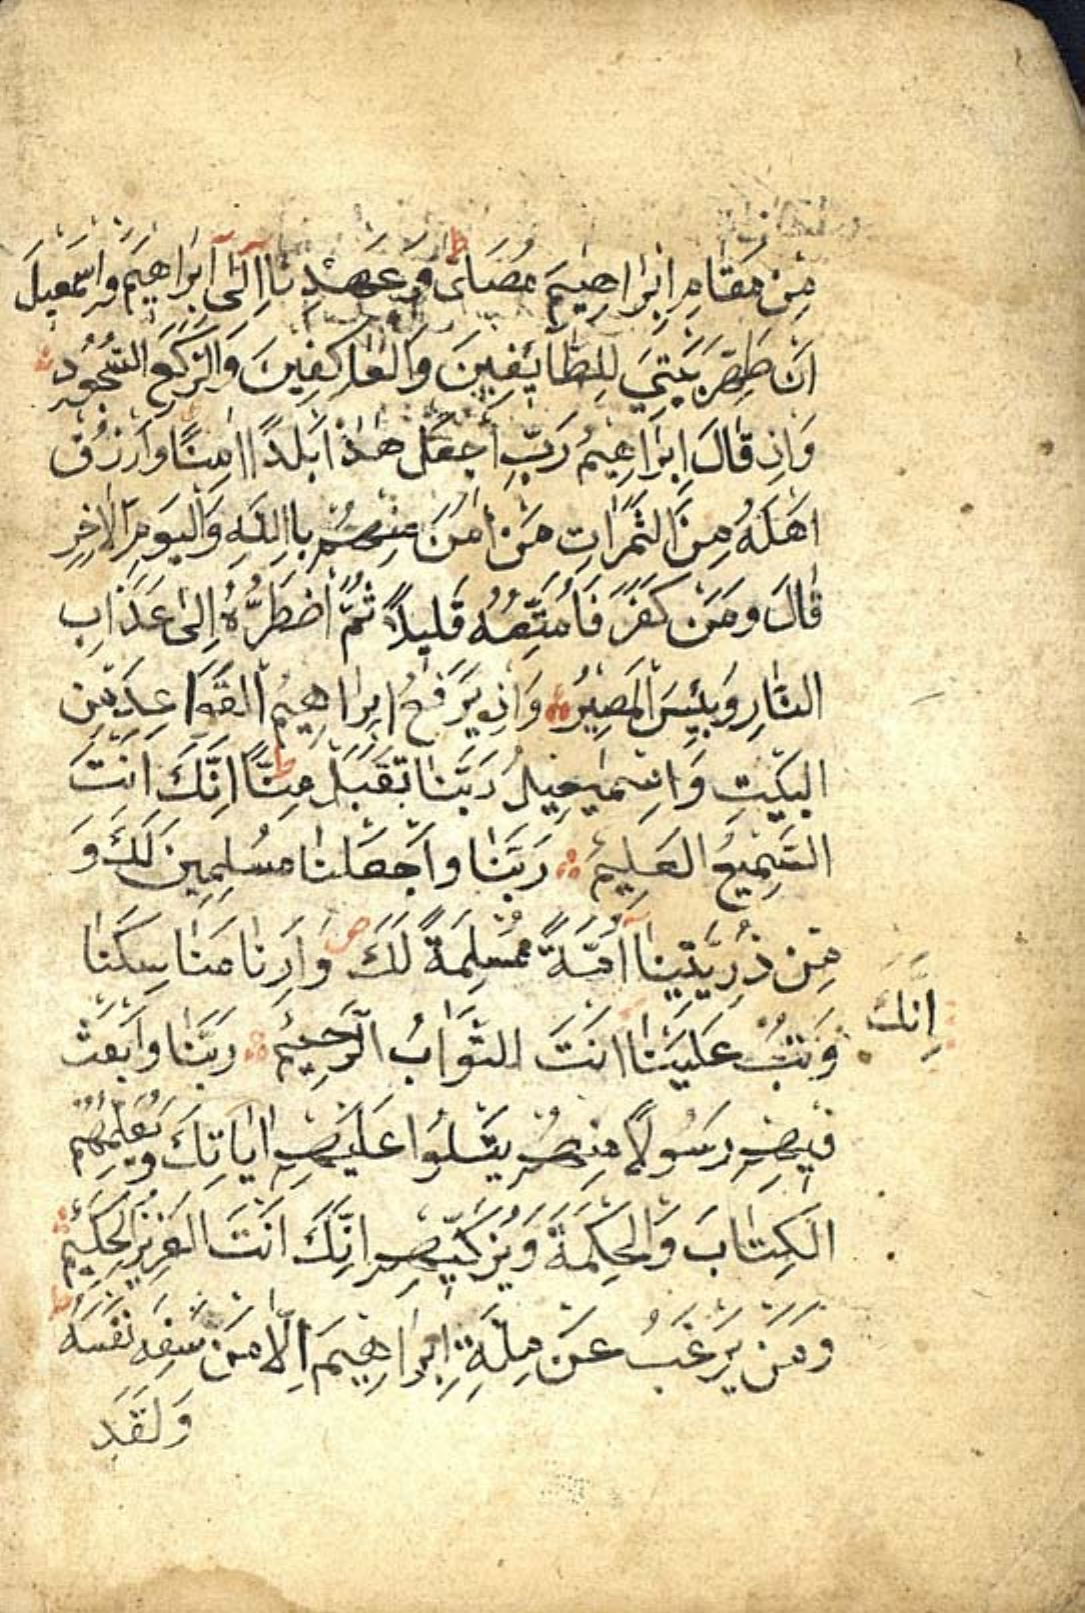 مِنْ مَقَامِ اِبْرَاهِيمَ مُصَلًّى وَعَهِدْنَا اِلٰٓى اِبْرَاهِيمَ وَاِسْمَعِيلَ
اَنْ طَهِّرَ بَيْتِيَ لِلطَّائِفِينَ وَالْعَاكِفِينَ وَالرُّكَّعِ السُّجُودِ
وَاِذْ قَالَ اِبْرَاهِيمُ رَبِّ اجْعَلْ هٰذَا بَلَدًا اٰمِنًا وَارْزُقْ
اَهْلَهُ مِنَ الثَّمَرَاتِ مَنْ اٰمَنَ مِنْهُمْ بِااللّٰهِ وَالْيَوْمِ الْاٰخِرِ
قَالَ وَمَنْ كَفَرَ فَاُمَتِّعُهُ قَلِيلًا ثُمَّ اَضْطَرُّهُ اِلٰى عَذَابِ
النَّارِ وَبِئْسَ الْمَصِيرُ وَاِذْ يَرْفَعُ اِبْرَاهِيمُ الْقَوَاعِدَ مِنَ
الْبَيْتِ وَاِسْمٰعِيلُ رَبَّنَا تَقَبَّلْ مِنَّا اِنَّكَ اَنْتَ
السَّمِيعُ الْعَلِيمُ رَبَّنَا وَاجْعَلْنَا مُسْلِمِينَ لَكَ وَ
مِنْ ذُرِّيَّتِينَا اُمَّةً مُسْلِمَةً لَكَ وَاَرِنَا مَنَاسِكَنَا
وَتُبْ عَلَيْنَا اَنْتَ التَّوَّابُ الرَّحِيمُ رَبَّنَا وَابْعَثْ
اِنَّكَ
فِيهِمْ رَسُولًا مِنْهُمْ يَتْلُوا عَلَيْهِمْ اٰيَاتِكَ وَيُعَلِّمُهُمُ
الْكِتَابَ وَالْحِكْمَةَ وَيُزَكِّيهِمْ اِنَّكَ اَنْتَ الْعَزِيزُ الْحَكِيمُ
وَمَنْ يَرْغَبُ عَنْ مِلَّةِ اِبْرَاهِيمَ اِلَّا مَنْ سَفِهَ نَفْسَهُ
وَلَقَدِ